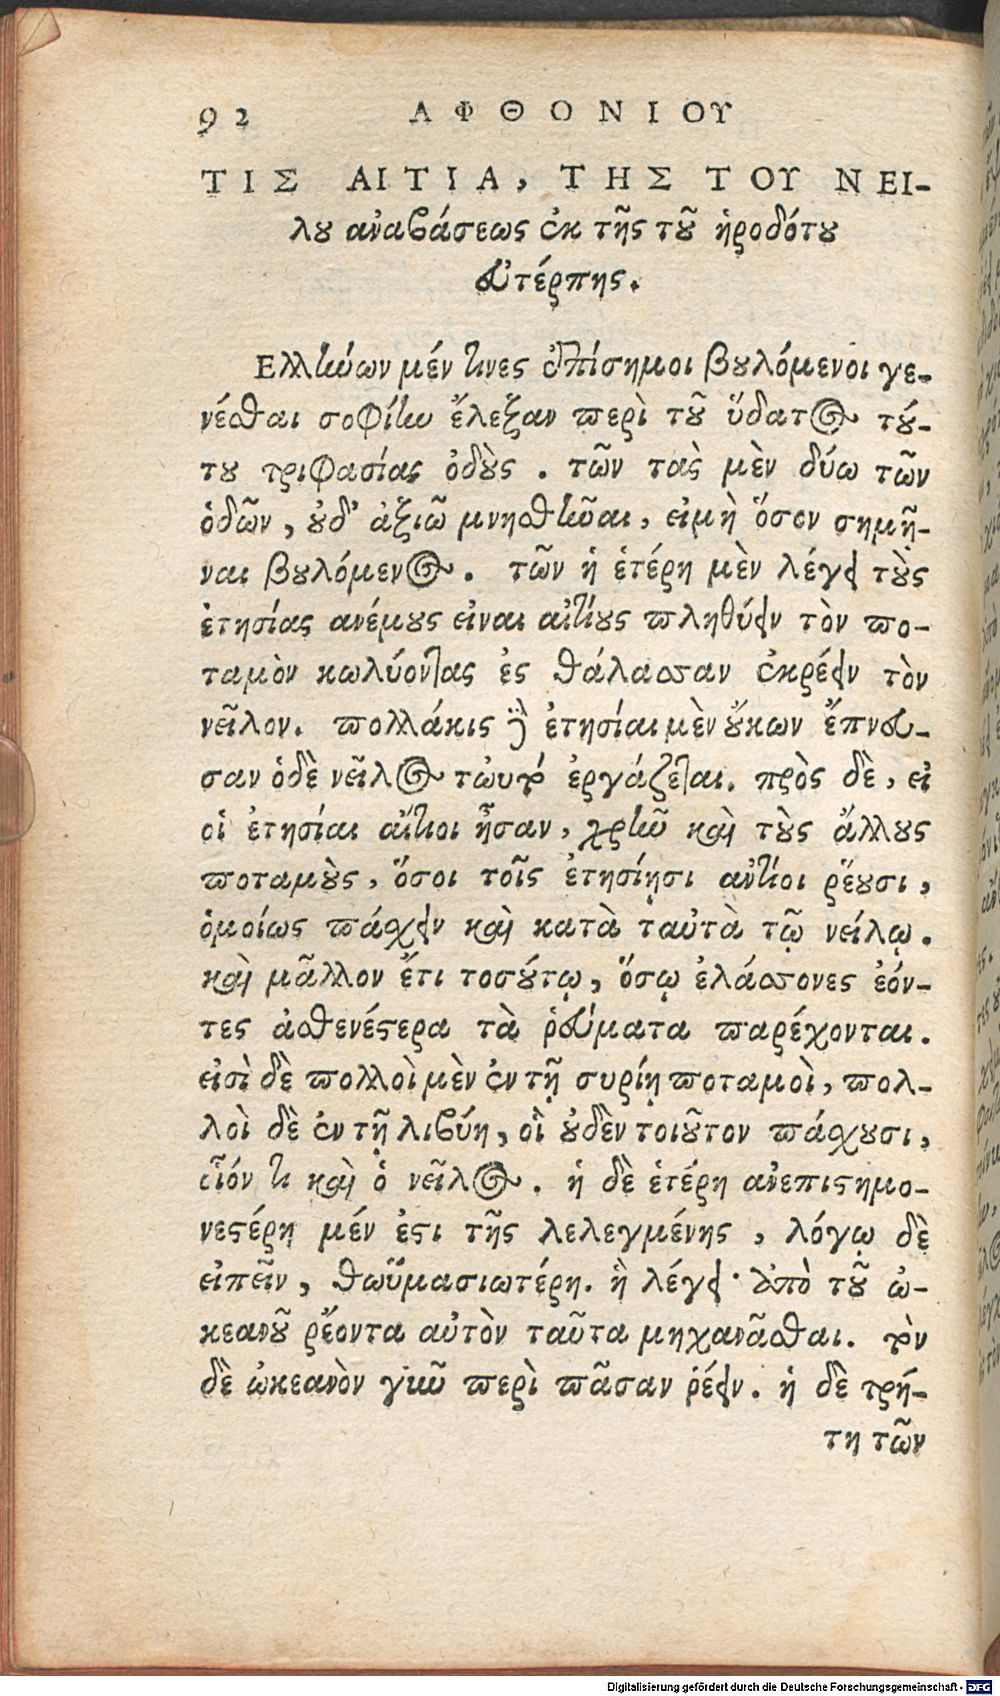 92 ΑΦΘΟΝΙΟΥ
ΤΙΣ ΑΙΤΙΑ, ΤΗΣ ΤΟΥ ΝΕΙ-
λου αναβάσεως ἐκ τῆς τοῦ ἡροδότου
ευτέρπης.
Ελλήνων μέν τινες ἐπίσημοι βουλόμενοι γε-
νέσθαι σοφίην ἔλεξαν περὶ τοῦ ὕδατος τού-
του τριφασίας ὁδοὺς. τῶν τὰς μὲν δύω τῶν
ὁδῶν, οὐδ' ἀξιῶ μνησθῆναι, εἰμὴ ὅσον σημῆ-
ναι βουλόμενος. τῶν ἡ ἑτέρη μὲν λέγει τοὺς
ἐτησίας ανέμους εἶναι αἰτίους πληθύειν τὸν πο-
ταμὸν κωλύοντας ἐς θάλασσαν ἐκρέειν τὸν
νεῖλον. πολλάκις δὲ ἐτησίαι μὲν οὔκων ἔπνευ-
σαν ὁδὲ νεῖλος τὠυτὸ ἐργάζεται. πρὸς δὲ, εἰ
οἱ ἐτησίαι αἴτιοι ἦσαν, χρῆν καὶ τοὺς ἄλλους
ποταμοὺς, ὅσοι τοῖς ἐτησίῃσι αντίοι ῥέουσι,
ὁμοίως πάσχειν καὶ κατὰ ταὐτὰ τῷ νείλῳ.
καὶ μᾶλλον ἔτι τοσούτῳ, ὅσῳ ἐλάσσονες ἐόν-
τες ἀσθενέστερα τὰ ῥεύματα παρέχονται.
εἰσὶ δὲ πολλοὶ μὲν ἐν τῇ συρίῃ ποταμοὶ, πολ-
λοὶ δὲ ἐν τῇ λιβύη, οἳ οὐδὲν τοιοῦτον πάσχουσι,
οἷόν τι καὶ ὁ νεῖλος. ἡ δὲ ἑτέρη ανεπιστημο-
νεστέρη μέν ἐστι τῆς λελεγμένης, λόγῳ δὲ
εἰπεῖν, θωϋμασιωτέρη. ἣ λέγει· ἀπὸ τοῦ ὠ-
κεανοῦ ῥέοντα αὐτὸν ταῦτα μηχανᾶσθαι. τὸν
δὲ ὠκεανὸν γῆν περὶ πᾶσαν ῥέειν. ἡ δὲ τρί-
τη τῶν
Digitalisierung gefördert durch die Deutsche Forschungsgemeinschaft - DFG